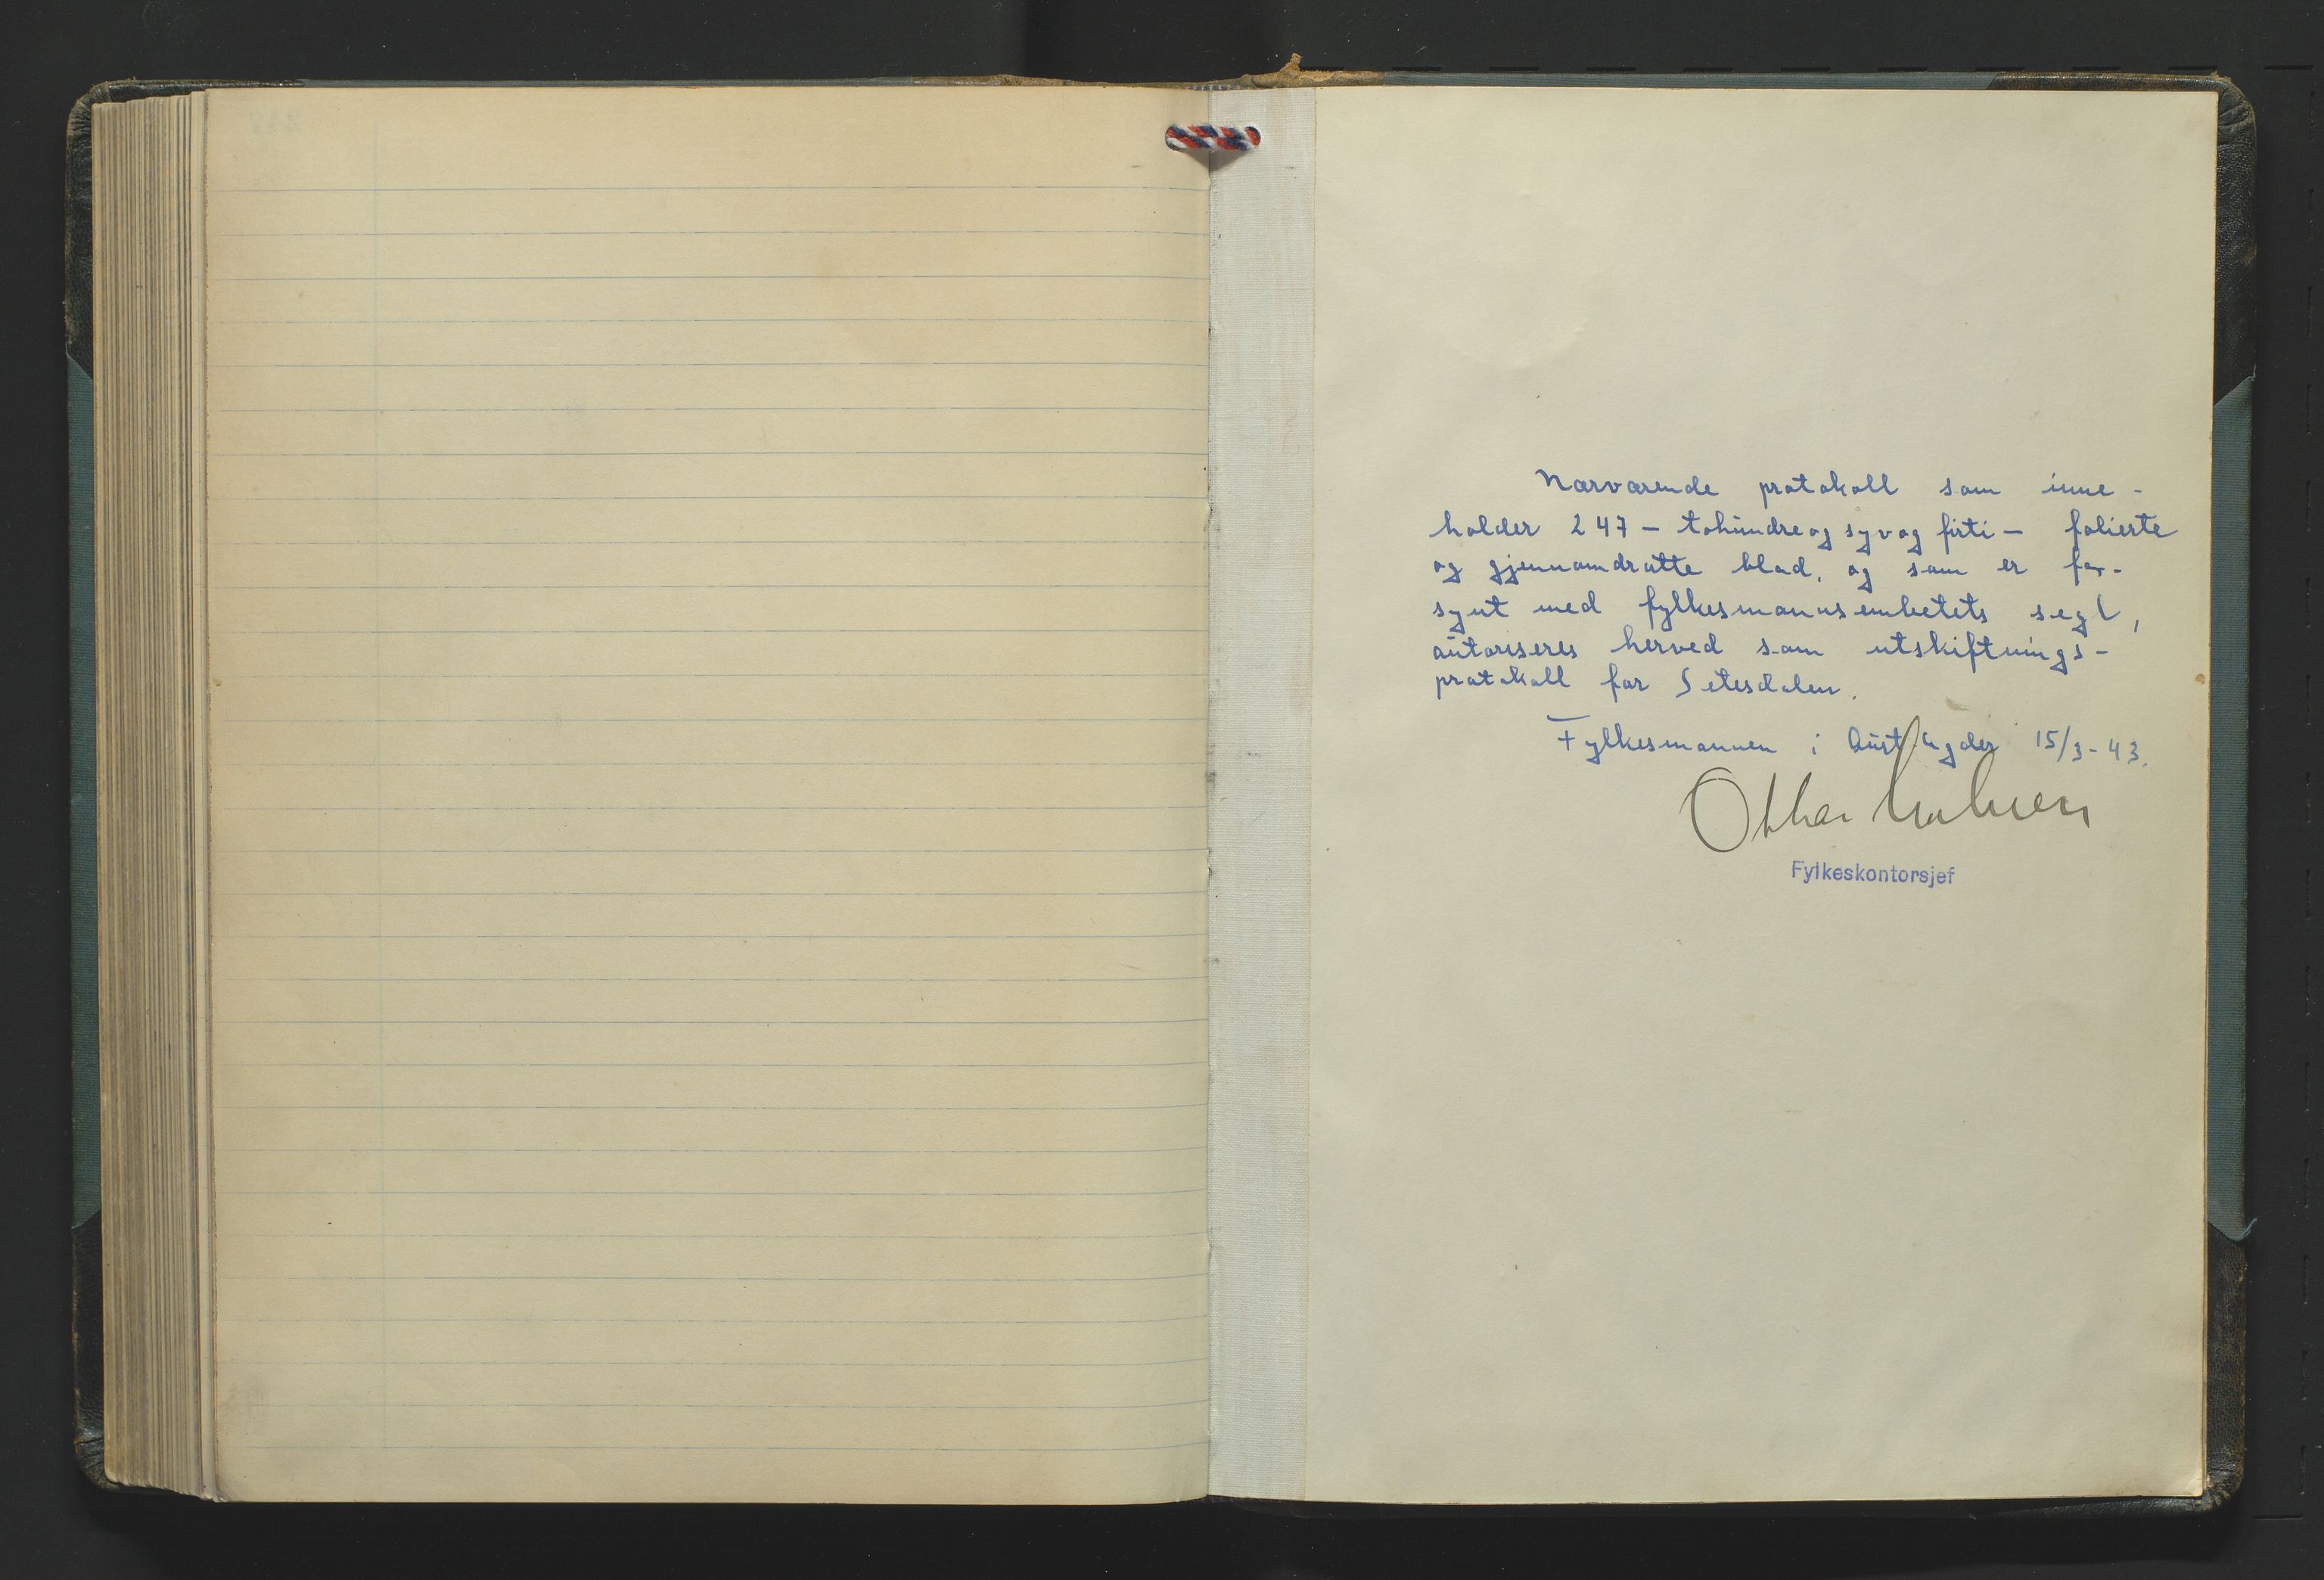 Nærværende protokoll som inne-
holder 247 - tohundreog syvog firti - folierte
og gjennomdratte blad, og som er for-
synt med fylkesmannsembetets segl,
autoriseres herved som utskiftnings-
protokoll for Setesdalen.
Fylkesmannen i Aust Agder 15/3-43.
Ottar
Fylkeskontorsjef